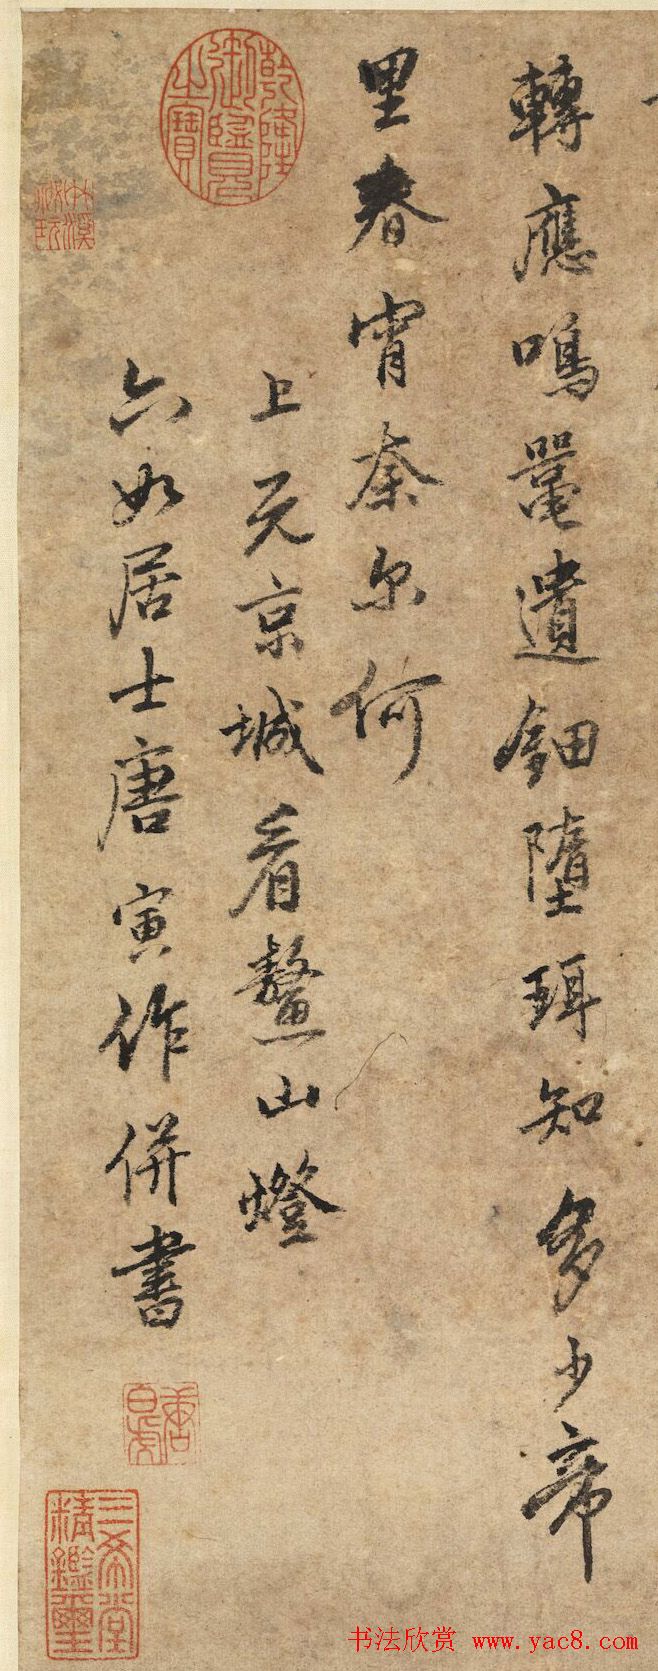 轉應鳴鼉遺鈿墮珥知多少帝
里春宵奈尔何
上元京城看鰲山燈
六如居士唐寅作併書
乾隆御覽之寶
唐白虎
三希堂精鑑璽
书法欣赏 www.yac8.com